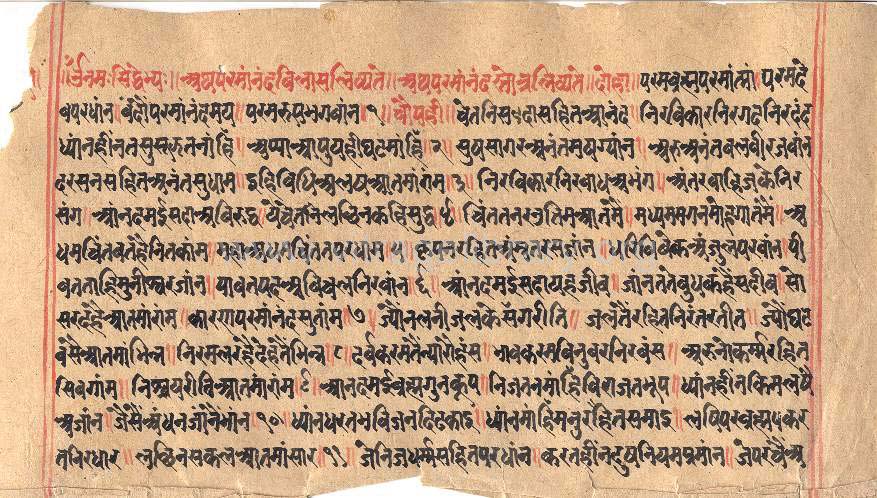 ॥ॐनमःसिद्धेभ्यः॥अथपरमांनंदविलासलिष्यते॥अथपरमांनंदस्तोत्रलिष्यते॥दोहा॥परमब्रह्मपरमांत्मां॥परमदे
वपरधांन॥बंदौंपरमांनंदमय॥परमरूपभगवांन॥१॥चौपई॥चेतनिसदासहितआनंद॥निरविकारनिरगदनिरदंद
ध्यांनहींनतसुसरूतनांहिं॥अप्पाआपुयहीघटमांहिं॥२॥सुषसागरअनंतमयग्यांन॥अरुअनंतबलवीरजवांन
दरसनसहितअनंतसुधाम॥इहिविधिअलषआतमांरांम॥३॥निरविकारनिरबाधअभंग॥अंतरबाहिजकेनिर
संग॥आंनंदमईसदाअविरुद्ध॥येचेतनिलछिनकहिसुद्ध॥४॥चिंततनरउतिमआतमैं॥मध्यम॥अ
धमचिंतवतहैनितकांम॥महाअधमचिंततपरधांम॥५॥रसजांन॥परिविवेकअंजुलपरवांन॥पी
बततांहिमुनीस्वरजांन॥पावतपदअविचलनिरवांन॥६॥आंनंदमईसदायहजीव॥जांनततेबुधकहैंसदीव॥सो
सरदहैआतमांरांम॥कारणपरमांनंदसुतांम॥७॥ज्यौंनलनीजलकेसंगरीति॥जलतैंरहितनिरंतरतीत॥ज्यौंघट
बसैआतमांभिंन॥निरमलरहैदेहतैंभिन्न॥८॥दर्वकरमतैंन्यारौहंस॥भावकरमबिनुवरनिरवंस॥अरुनोकर्म्मरहित
सिवगांम॥निश्चयरीतिआतमांरांम॥९॥आनंदमईब्रह्मगुनकूप॥निजतनमांहिबिराजतभूप॥ध्यांनहींनकिमलषै
अजांन॥जैसेंअंधनजांनैभांन॥१०॥ध्यांनधरतभविजनदिढकाइ॥ध्यांनमांहिंमनुरहितसमाइ॥लषिपरब्रह्मपकर
तनिरधार॥लछिनसकलआतमांसार॥११॥जेनिजधर्म्मसहितपरधांन॥करतहींनदुषनियमप्रमांन॥जेपरचेअ